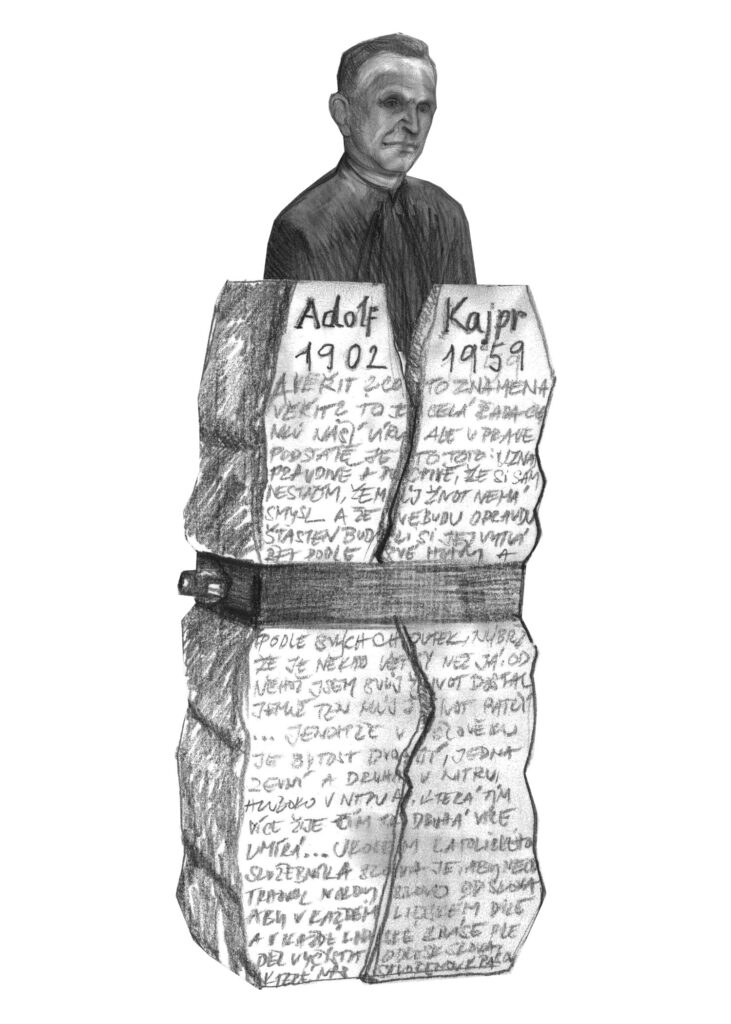 Adolf Kajpr
1902 1959
A VĚŘIT? CO TO ZNAMENÁ
VĚŘIT? TO JE CELÁ ŘADA
NAŠÍ VÍRY ALE V PRAVÉ
PODSTATĚ JE TO TOTO: UZNAT
PRAVDIVĚ A POCTIVĚ, ŽE SI SÁM
NESTAČÍM, ŽE MŮJ ŽIVOT NEMÁ
SMYSL A ŽE NEBUDU OPRAVDU
ŠŤASTEN BUDU-LI SI JEJ
PODLE SVÉ HLAVY A
PODLE SVÝCH CHOUTEK, NÝBRŽ
ŽE JE NĚKDO VĚTŠÍ NEŽ JÁ, OD
NĚHOŽ JSEM SVŮJ ŽIVOT DOSTAL
JEMUŽ TEN MŮJ ŽIVOT PATŘÍ
... JENOMŽE V ČLOVĚKU
JE BYTOST DVOJÍ, JEDNA
ZEVNÍ A DRUHÁ V NITRU,
HLUBOKO V NITRU A KTERÁ TÍM
VÍCE ŽIJE ČÍM TA DRUHÁ VÍCE
UMÍRÁ... ÚKOLEM KATOLICKÉHO
SLUŽEBNÍKA SLOVA JE, ABY
SLOVO OD SLOVA
ABY V KAŽDÉM LIDSKÉM DÍLE
A V KAŽDÉ
SLOVA,
KTERÉ NÁS